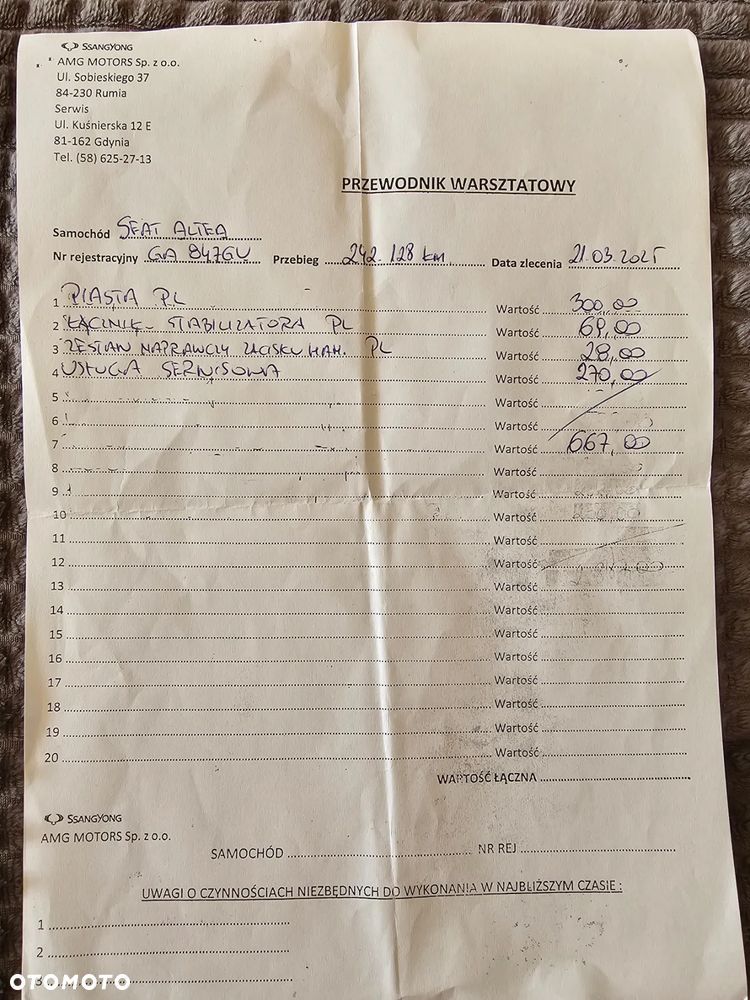 SSANGYONG
AMG MOTORS Sp. z o.o.
Ul. Sobieskiego 37
84-230 Rumia
Serwis
Ul. Kuśnierska 12 E
81-162 Gdynia
Tel. (58) 625-27-13
PRZEWODNIK WARSZTATOWY
Samochód SEAT ALTEA
Nr rejestracyjny GA 8476V Przebieg 242.128 km Data zlecenia 21.03.2025
1 PIASTA PL Wartość 300,00
2 ŁĄCZNIK STABILIZATORA PL Wartość 69,00
3 ZESTAW NAPRAWCZY ZACISKU HAM. PL Wartość 28,00
4 USŁUGA SERWISOWA Wartość 270,00
5 Wartość
6 Wartość
7 Wartość 667,00
8 Wartość
9 Wartość
10 Wartość
11 Wartość
12 Wartość
13 Wartość
14 Wartość
15 Wartość
16 Wartość
17 Wartość
18 Wartość
19 Wartość
20 Wartość
WARTOŚĆ ŁĄCZNA
SSANGYONG
AMG MOTORS Sp. z o.o.
SAMOCHÓD NR REJ
UWAGI O CZYNNOŚCIACH NIEZBĘDNYCH DO WYKONANIA W NAJBLIŻSZYM CZASIE :
1
2
3
OTOMOTO